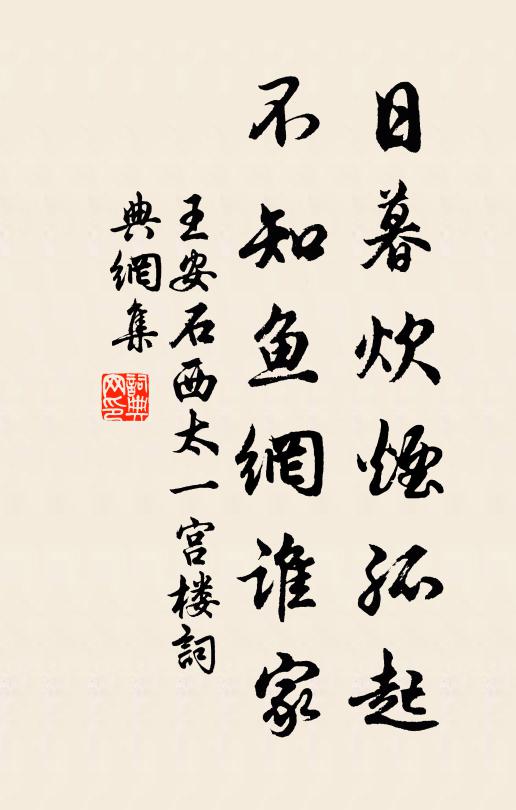 日暮炊煙孤起
不知鱼網誰家
王安石西太一宫楼詞
典網集
詞典网印